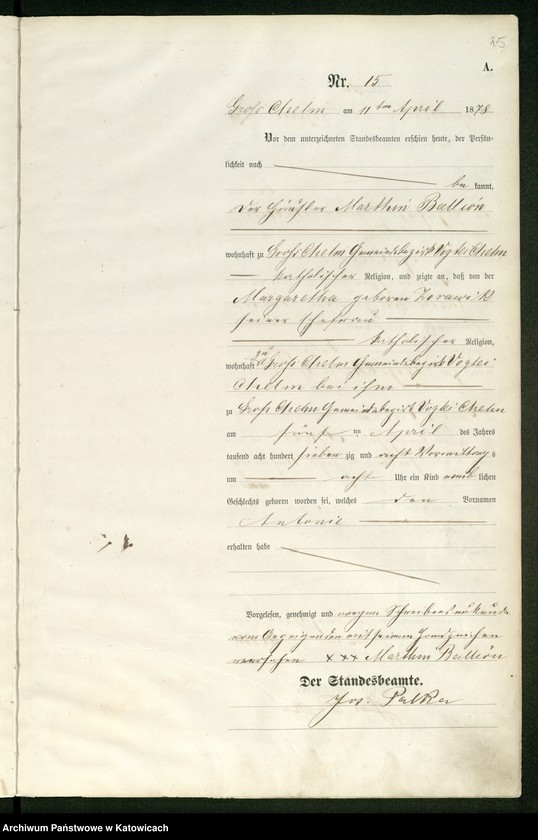 15
A.
Nr. 15
Gross Chelm am 11ten April 1878
Vor dem unterzeichneten Standesbeamten erschien heute, der Persön-
lichkeit nach
be kannt,
der Häusler Marthin Ballion
wohnhaft zu Gross Chelm Gemeindebezirk Vogtei Chelm
katholischer Religion, und zeigte an, daß von der
Margaretha geboren Zorawik
seiner Ehefrau
katholischer Religion,
wohnhaft zu Gross Chelm Gemeindebezirk Vogtei
Chelm bei ihm
zu Gross Chelm Gemeindebezirk Vogtei Chelm
am fünf ten April des Jahres
tausend acht hundert sieben zig und acht Vormittag s
um acht Uhr ein Kind weib lichen
Geschlechts geboren worden sei, welches den Vornamen
Antonie
erhalten habe
Vorgelesen, genehmigt und wegen Schreibensunkunde
vom Anzeigenden mit seinem Handzeichen
versehen xxx Marthin Ballion
Der Standesbeamte.
Jos. Palka
Archiwum Państwowe w Katowicach